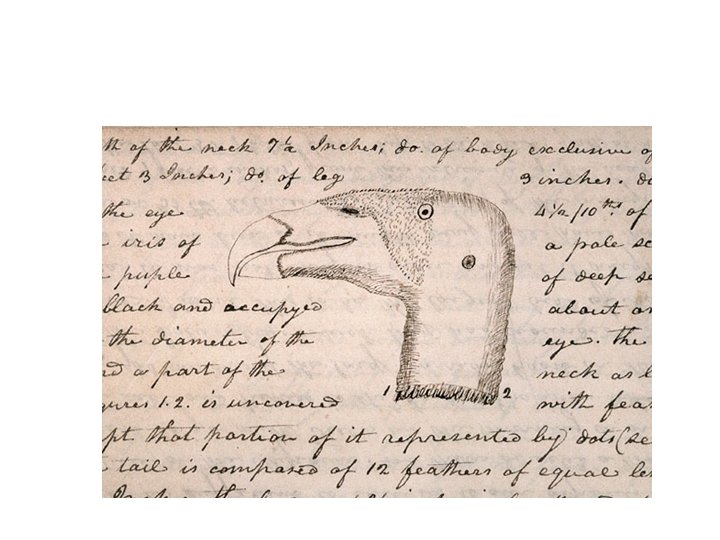 th of the neck 7½ Inches; do. of body exclusive of
3 Inches; do. of leg 3 inches.
the eye 4½/10ths of
iris of a pale
puple of deep
black and occupyed about
the diameter of the eye. the
a part of the neck as
1 2
1. 2. is uncovered with
pt that portion of it represented by dots (se
tail is composed of 12 feathers of equal